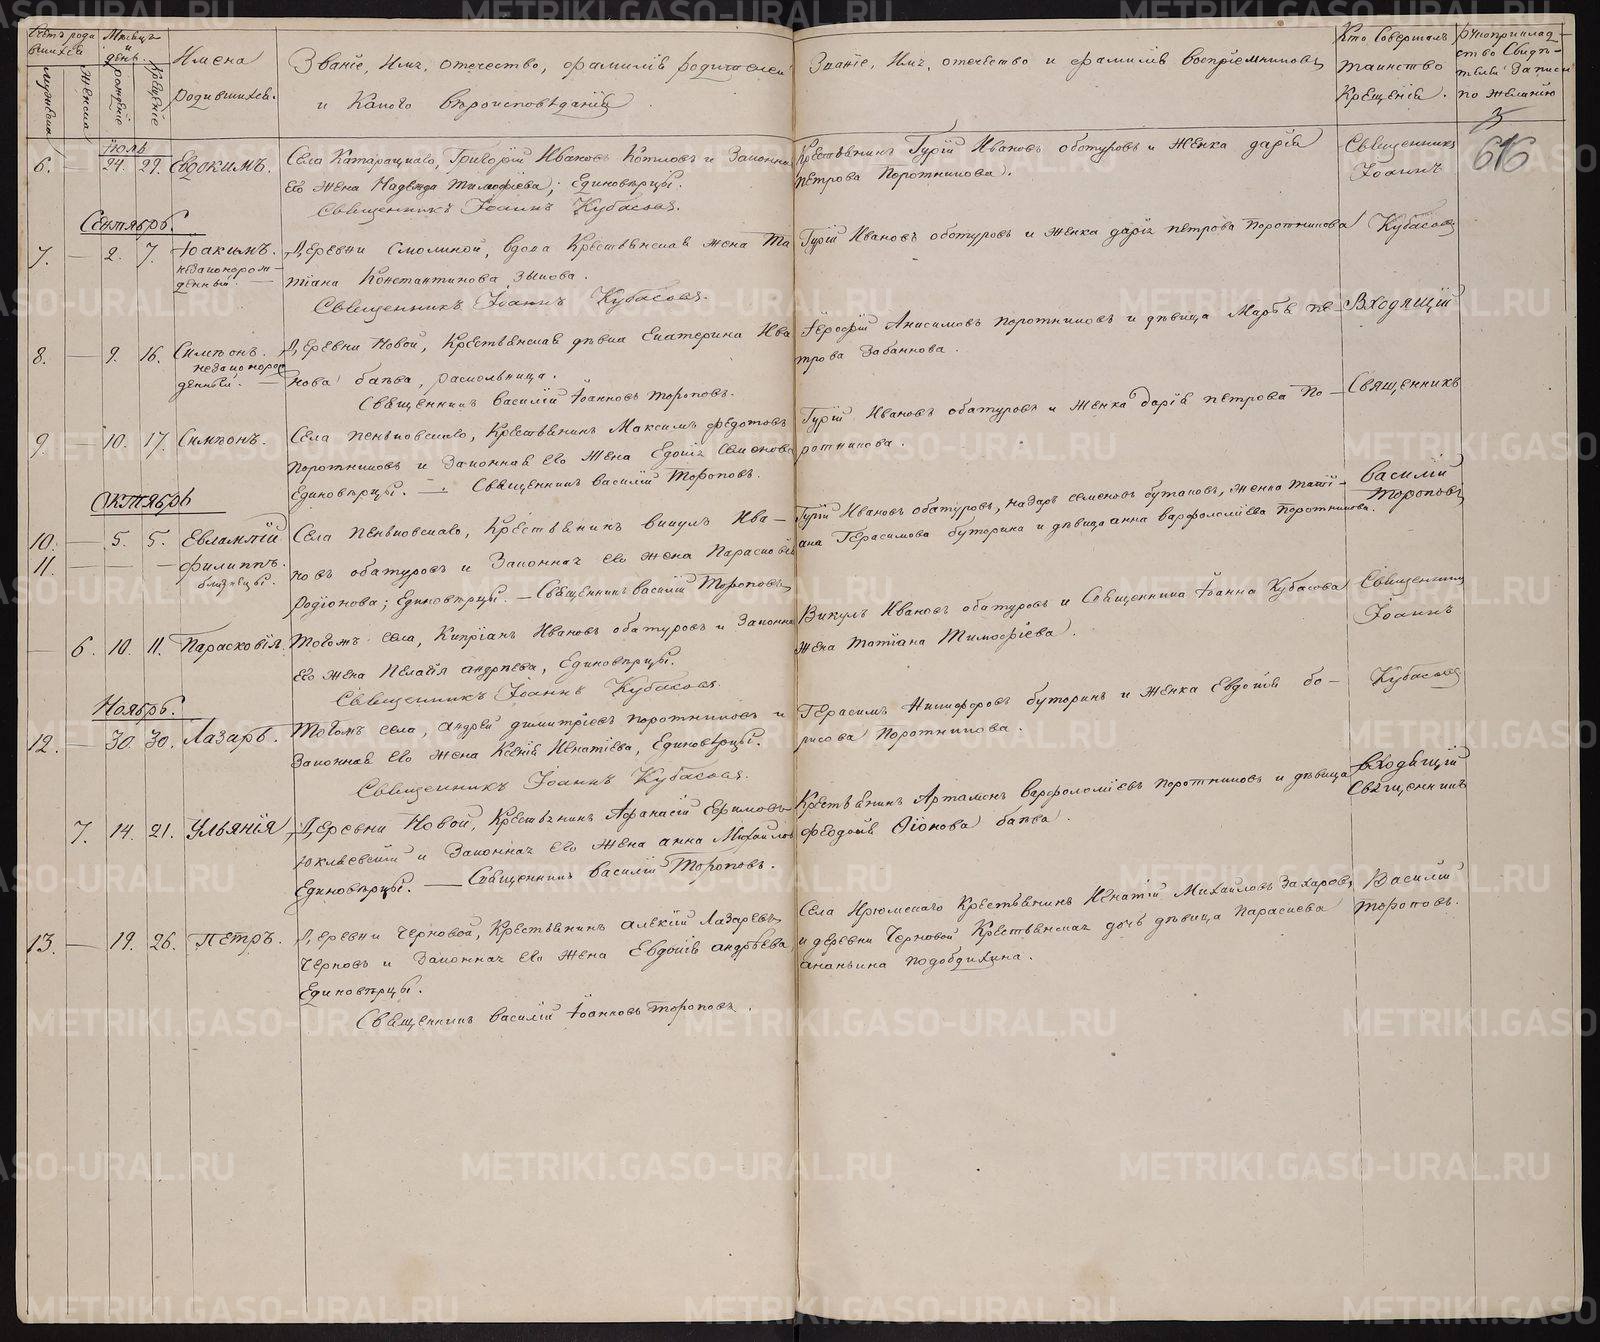 Счетъ роди
вшихся
Мѣсяцъ
и
день.
Имена
родившихся.
Мужеска
Женска
рожденіе
крещеніе
Званіе, Имя, отечество, фамилія родителей
и Какого вѣроисповѣданія
Званіе, Имя, отечество и фамилія воспріемниковъ
Кто Совершалъ
таинство
Крещенія.
рукоприклад-
ство Свидѣ-
телей Записи
по желанію
616
Июль
6. — 24. 29. Евдокимъ.
Села Катарацкаго, Григорій Ивановъ Котловъ и Законная
его жена Надежда Тимофіева; Единовѣрцы.
Священникъ Іоаннъ Кубасовъ.
Крестьянинъ Гурій Ивановъ обатуровъ и женка дарія
петрова Поротникова.
Священникъ
Іоаннъ
Кубасовъ
Сентябрь.
7. — 2. 7. Іоакимъ.
незаконорож-
денный. —
Деревни Смолиной, вдова Крестьянская жена Та
тіана Константинова Зыкова.
Священникъ Іоаннъ Кубасовъ.
Гурій Ивановъ обатуровъ и женка дарія петрова Поротникова
8. — 9. 16. Симеонъ.
незаконорож
денный. —
Деревни Новой, Крестьянская дѣвка Екатерина Ива
нова бабва, раскольница.
Священникъ Василій Іоанновъ Тороповъ.
Іерофій Анисимовъ поротниковъ и дѣвица Марѳа пе-
трова Забаннова.
Входящій
Священникъ
Василій
Тороповъ
9. — 10. 17. Симеонъ.
Села пеньковскаго, Крестьянинъ Максимъ федотовъ
Поротниковъ и Законная его жена Едокія семенова
Единовѣрцы. — Священникъ Василій Тороповъ.
Гурій Ивановъ обатуровъ и женка дарія петрова По-
ротникова.
Октябрь
10. — 5. 5. Евлампій
11. — — — филиппъ.
близнецы.
Села пеньковскаго, Крестьянинъ викулъ Ива-
новъ обатуровъ и Законная его жена Парасковія
Родіонова; Единовѣрцы. — Священникъ Василій Тороповъ
Гурій Ивановъ обатуровъ, назаръ семеновъ бутаковъ, женка таті-
ана Герасимова буторина и дѣвица анна варфоломіева Поротникова.
— 6. 10. 11. Парасковія.
тогожъ села, Кипріанъ Ивановъ обатуровъ и Законна
его жена Пелагія андрѣева, Единовѣрцы.
Священникъ Іоаннъ Кубасовъ.
Викулъ Ивановъ обатуровъ и Священника Іоанна Кубасова
жена татіана Тимофіева.
Священникъ
Іоаннъ
Кубасовъ
Ноябрь.
12. — 30. 30. Лазарь.
тогожъ села, андрей димитріевъ поротниковъ и
Законная его жена Ксенія Игнатіева, Единовѣрцы.
Священникъ Іоаннъ Кубасовъ.
Герасимъ Никифоровъ буторинъ и женка Евдокія бо-
рисова поротникова.
7. 14. 21. Ульянія
Деревни Новой, Крестьянинъ Афанасій Ефимовъ
Юклаевскій и Законная его жена анна Михайлов
Единовѣрцы. — Священникъ Василій Тороповъ.
Крестьянинъ Артамонъ Варфоломіевъ поротниковъ и дѣвица
феодосія Ѳіонова бабва.
Входящій
Священникъ
Василій
Тороповъ.
13. — 19. 26. Петръ.
Деревни Черновой, Крестьянинъ алексій Лазаревъ
Черновъ и Законная его жена Евдокія андрѣева
Единовѣрцы.
Священникъ Василій Іоанновъ тороповъ.
Села Ирюмскаго Крестьянинъ Игнатій Михайловъ Захаровъ,
и деревни Черновой Крестьянская дочь дѣвица Парасиева
ананьина подобдихина.